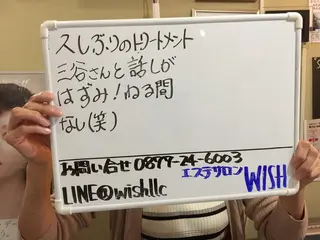 久しぶりのトリートメント
三谷さんと話しが
はずみ!ねる間
なし(笑)
お問い合せ 0879-24-6003
エステサロン WISH
LINE@wishllc